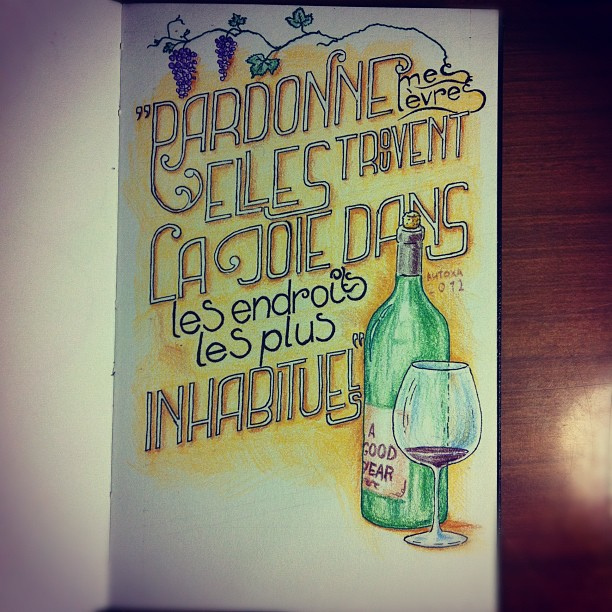 "PARDONNE mes lèvres
ELLES TROUVENT
LA JOIE DANS
les endroits
les plus
INHABITUELS"
AUTOXA
2012
A
GOOD
YEAR